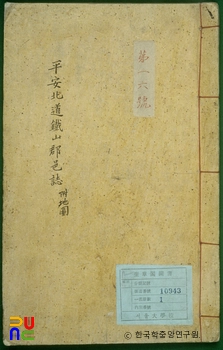 第十六號
平安北道鐵山郡邑誌 附地圖
10943
1
ⓒ 한국학중앙연구원